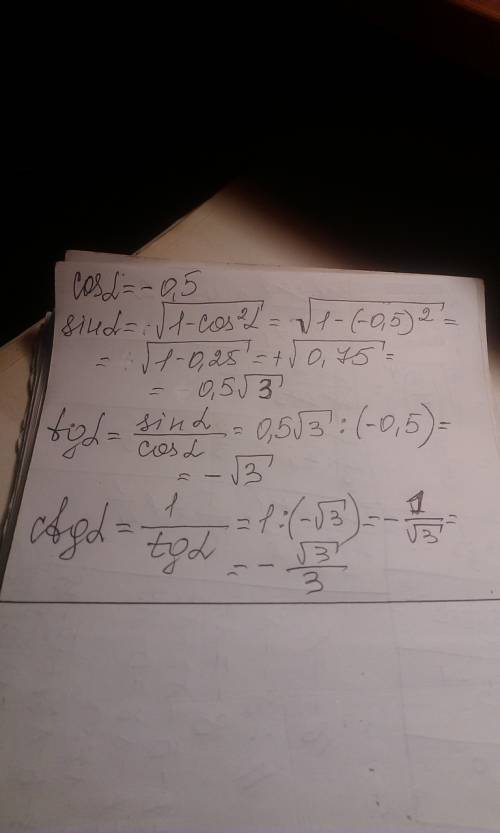 cosα = -0,5
sinα = √(1-cos²α) = √(1-(-0,5)²) =
= √(1-0,25) = +√(0,75) =
= 0,5√3
tgα = sinα/cosα = 0,5√3 : (-0,5) =
= -√3
ctgα = 1/tgα = 1:(-√3) = -1/√3 =
= -√3/3